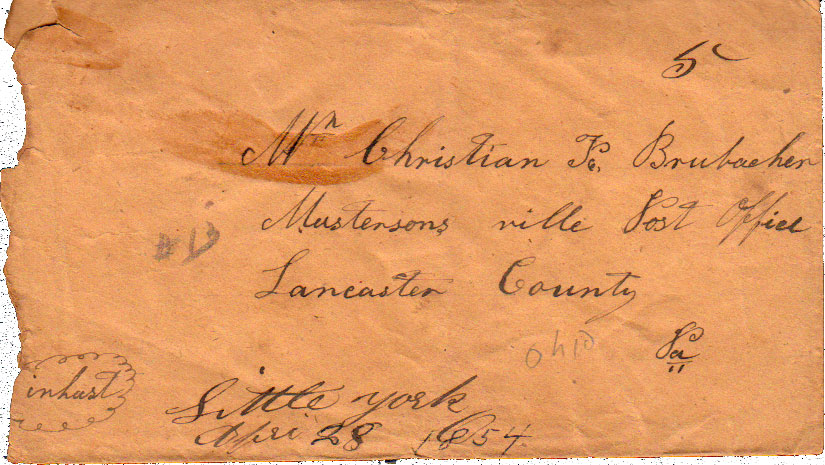 5
Mr Christian F. Brubacher
Mustersons ville Post Office
Lancaster County
Pa
Ohio
inhast
Little york
April 28 1854